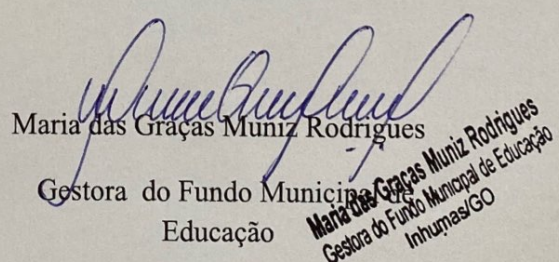 Maria das Graças Muniz Rodrigues
Gestora do Fundo Municipal de
Educação
Maria das Graças Muniz Rodrigues
Gestora do Fundo Municipal de Educação
Inhumas/GO